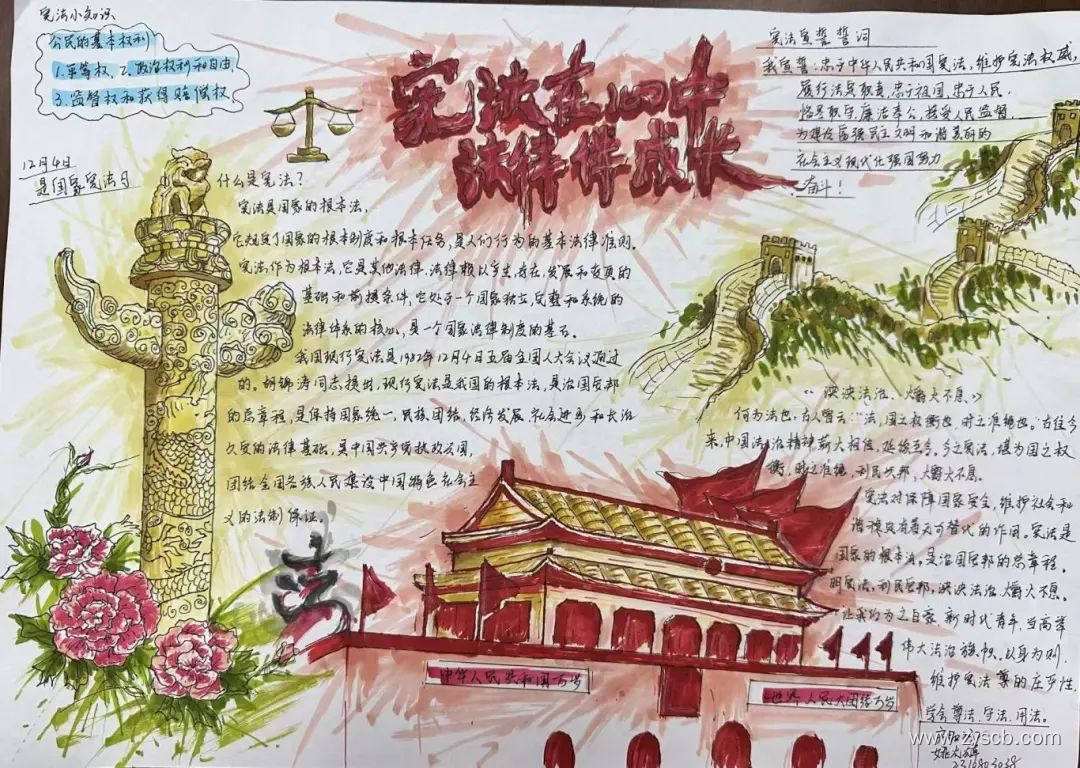 宪法小知识
公民的基本权利
1.平等权、2.政治权利和自由、
3.监督权和获得赔偿权
12月4日
是国家宪法日
宪法在心中
法律伴成长
宪法宣誓誓词
我宣誓：忠于中华人民共和国宪法，维护宪法权威，
履行法定职责，忠于祖国、忠于人民，
恪尽职守、廉洁奉公，接受人民监督，
为建设富强民主文明和谐美丽的
社会主义现代化强国努力
奋斗！
什么是宪法？
宪法是国家的根本法，
它规定了国家的根本制度和根本任务，是人们行为的基本法律准则。
宪法作为根本法，它是其他法律、法律赖以产生、存在、发展和变更的
基础和前提条件，它处于一个国家独立、完整和系统的
法律体系的核心，是一个国家法律制度的基石。
我国现行宪法是1982年12月4日五届全国人大会议通过
的。胡锦涛同志提出，现行宪法是我国的根本法，是治国安邦
的总章程，是保持国家统一、民族团结、经济发展、社会进步和长治
久安的法律基础，是中国共产党执政兴国、
团结全国各族人民建设中国特色社会主
义的法制保证。
《泱泱法治、爝火不息》
何为法也，古人曾云：“法，国之权衡也，时之准绳也。”古往今
来，中国法治精神薪火相传，延续至今。今之宪法，堪为国之权
衡，时之准绳，利民沃邦，爝火不息。
宪法对保障国家安全，维护社会和
谐稳定有着无可替代的作用。宪法是
国家的根本法，是治国安邦的总章程。
明民法，利民安邦，泱泱法治，爝火不息。
让我们为之自豪，新时代青年，当高举
伟大法治旗帜，以身为则，
维护宪法尊的庄严性，
学会尊法、守法、用法。
中华人民共和国万岁
世界人民大团结万岁
法
www.zyscb.com